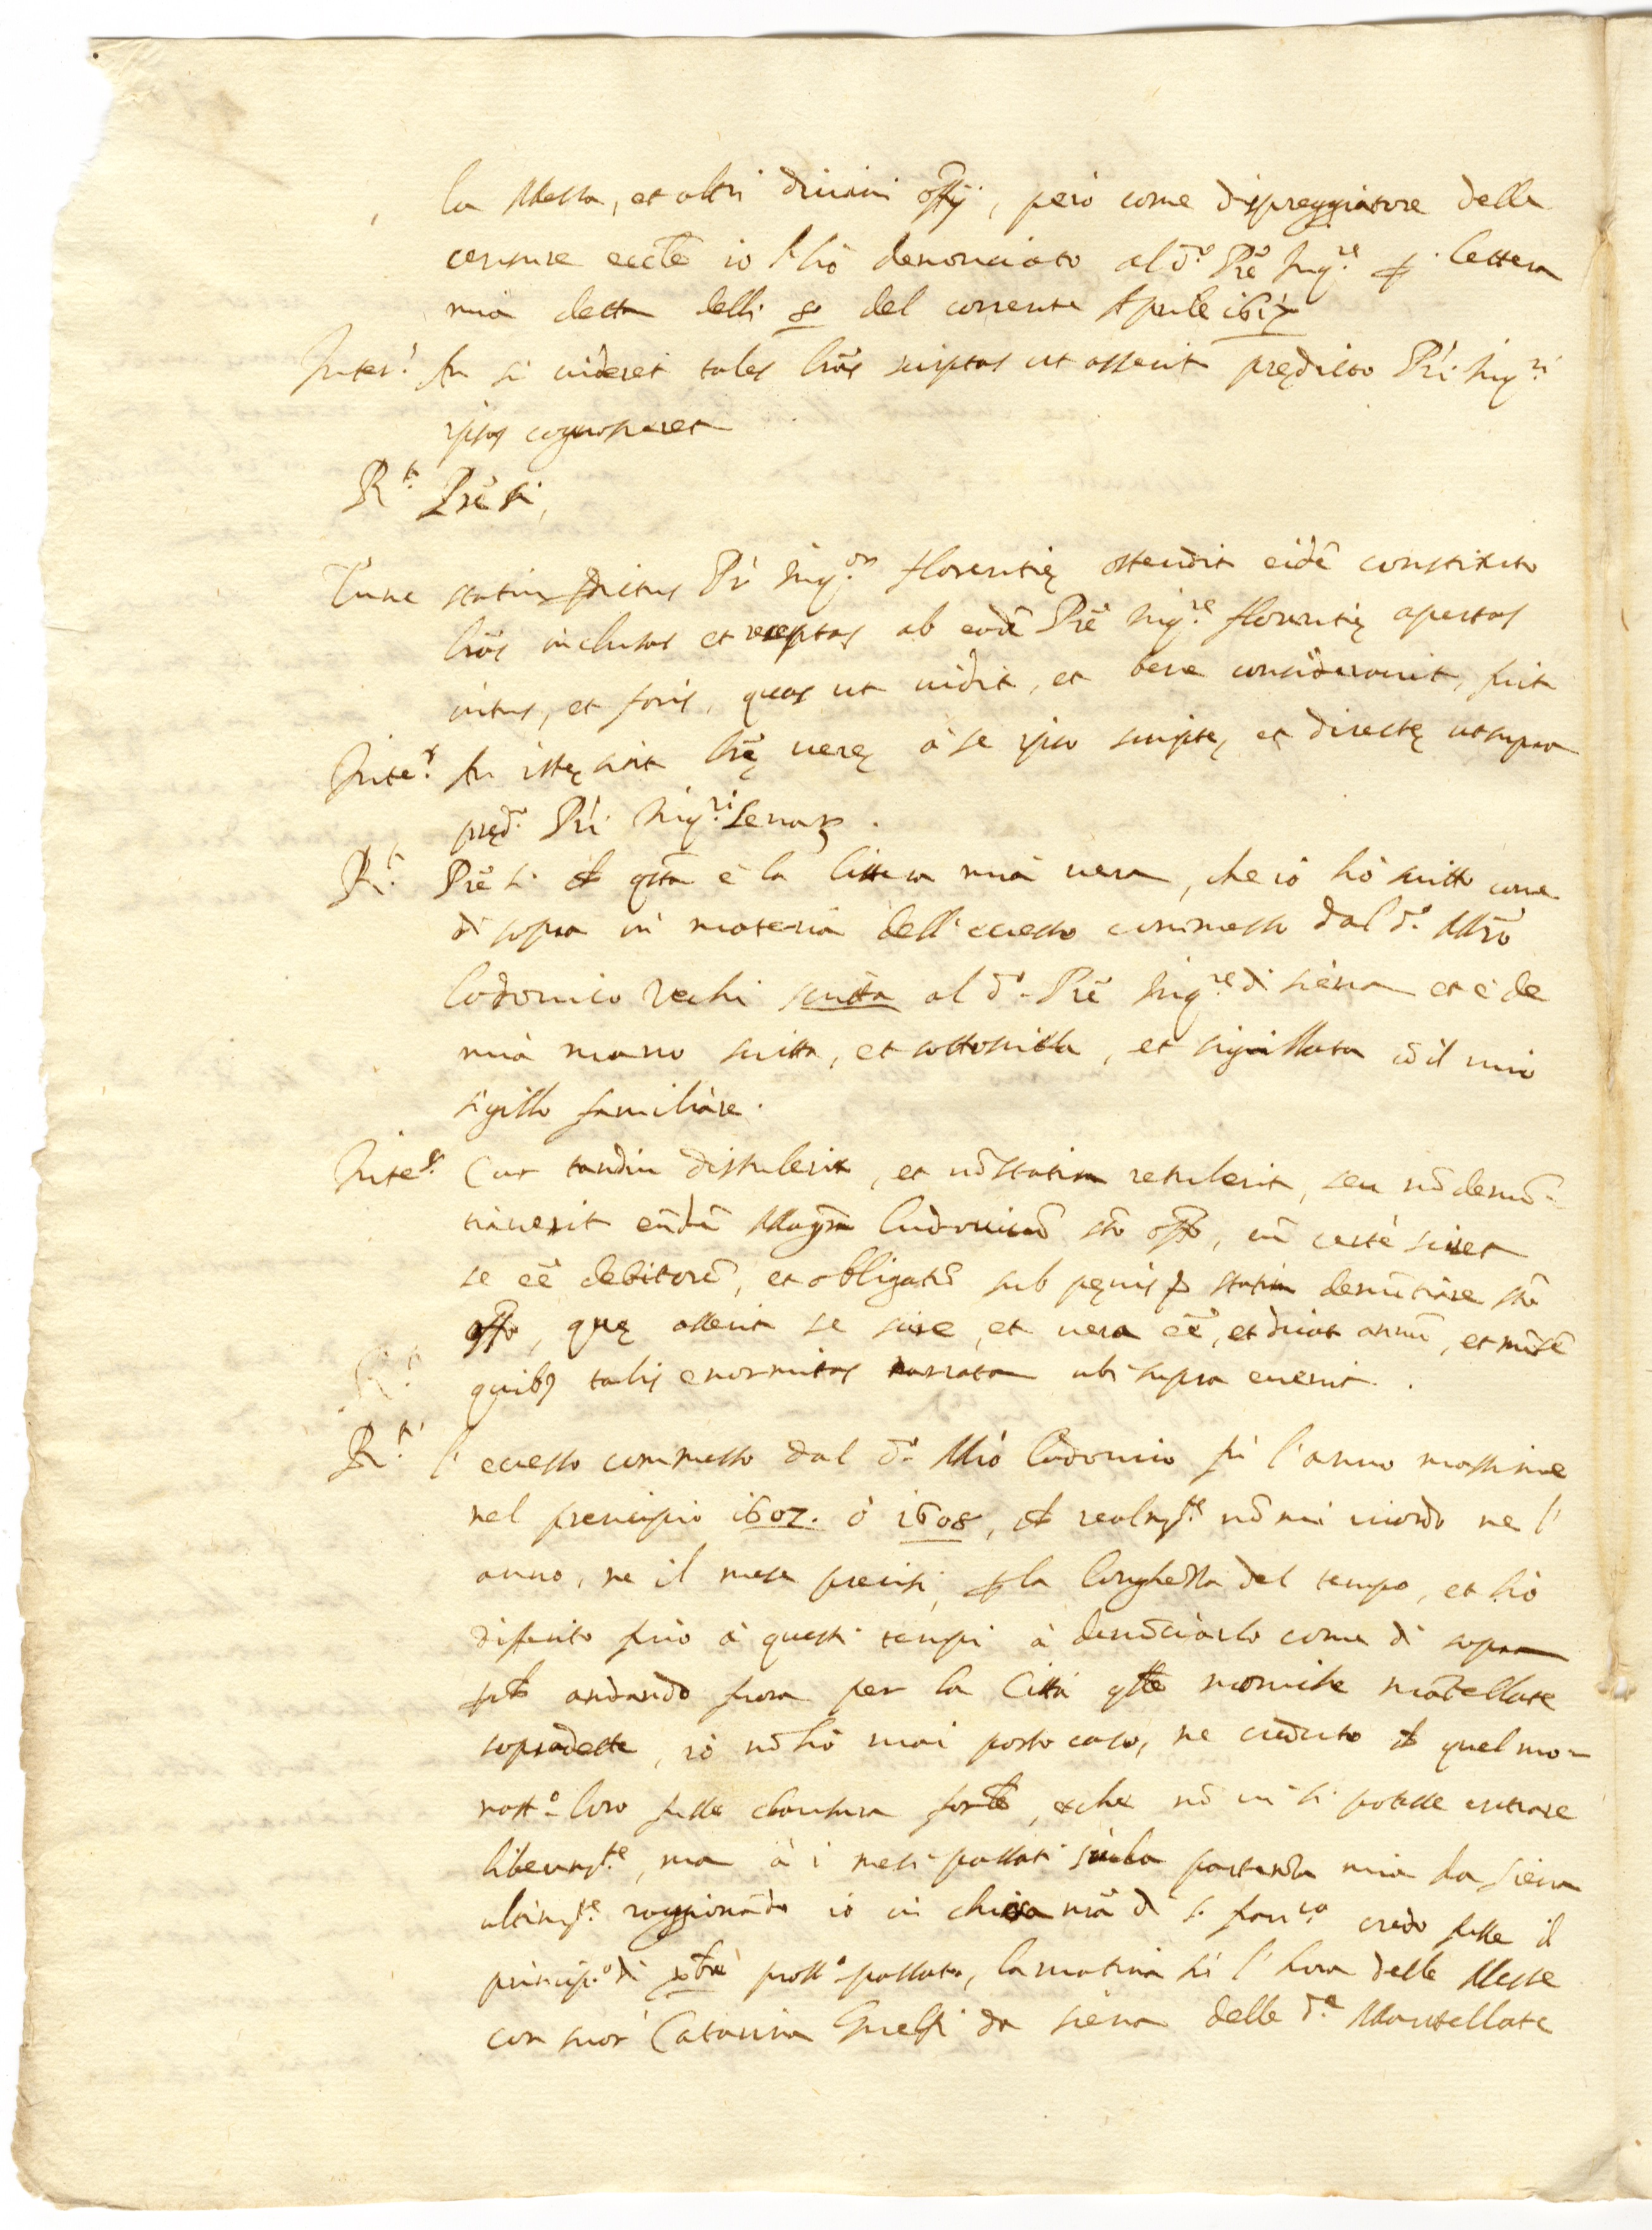 la Messa, et altri diuini offij, però come dispreggiatore delle
censure eccte io l'hò denonciato al d.º Prē Inq.re p lettera
mia detta delli 8 del corrente Aprile 1617
Inter.s An si uideret tales lrās scriptas ut asserit prędicto Prī Inq.ri
ipsas cognosceret
R.t Prē si,
Tunc statim dictus Pr̄ Inq.or florentię ostendit eidē constituto
lrās inclusas et receptas ab eodē Prē Inq.re florentię apertas
intus, et foris, quas ut uidit, et bene considerauit, fuit
Inter.s An istę sint lrę uerę à se ipso scriptę, et directę ut supra
pręd.º Prī Inq.ri Senaȝ.
R.t Prē si qsta è la littera mia uera, che iò hò scritto come
di sopra in materia dell'eccesso commesso dal d.º Mrō
Lodouico Vechi scritta al d.º Prē Inq.re di siena et è de
mia mano scritta, et sottoscritta, et sigillata cō il mio
sigillo familiare.
Inter.s Cur tandiu distulerit, et nō statim retulerit, seu nō denū-
tiauerit eūdē Magrm Ludouicū sto offo, cū certè sciret
se eē debitorē, et obligatū sub pęnis statim denūtiare sto
offo, quę asserit se scire, et uera eē, et dicat annū, et mēsē
quibȝ talis enormitas narrata ubi supra euenit.
R.t
R.t l'eccesso commesso dal d.º Mrō Lodouico fù l'anno massime
nel principio 1607. ò 1608, realm.te nō mi ricordo ne l'
anno, ne il mese precisi, p la longhezza del tempo, et hò
differito fino à questi tempi à denōciarlo come di sopra
andando fuora per la Città qste monache mātellate
sopradette, iò nō hò mai posto caso, ne creduto quel mo-
nast.º loro fusse clausura, et che nō ui si potesse entrare
liberam.te, ma à i mesi passati la partenza mia da siena
ultimam.te raggionādo iò in chiesa nrā di s. fran.co credo fusse il
princip.º di xbre pross.º passato, la matina sù l'hora delle Messe
con suor Catarina Guelfi da siena delle d.e Mantellate